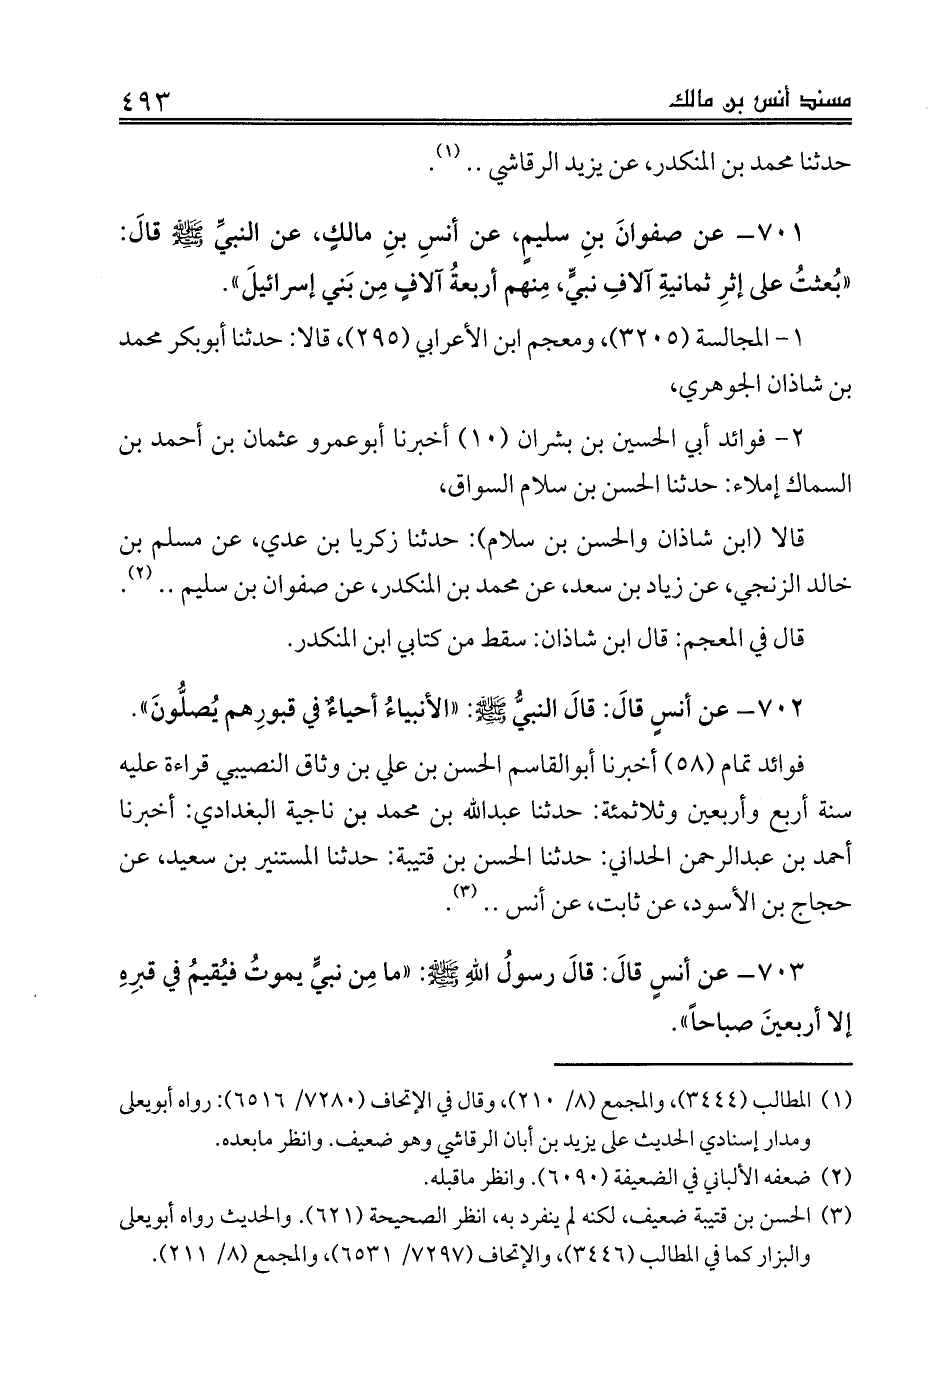 مسند أنس بن مالك ٤٩٣
حدثنا محمد بن المنكدر، عن يزيد الرقاشي .. (١).
٧٠١- عن صفوانَ بنِ سليمٍ، عن أنسِ بنِ مالكٍ، عن النبيِّ ﷺ قالَ:
«بُعثتُ على إثرِ ثمانيةِ آلافِ نبيٍّ، مِنهم أربعةُ آلافٍ مِن بَني إسرائيلَ».
١- المجالسة (٣٢٠٥)، ومعجم ابن الأعرابي (٢٩٥)، قالا: حدثنا أبوبكر محمد
بن شاذان الجوهري،
٢- فوائد أبي الحسين بن بشران (١٠) أخبرنا أبوعمرو عثمان بن أحمد بن
السماك إملاء: حدثنا الحسن بن سلام السواق،
قالا (ابن شاذان والحسن بن سلام): حدثنا زكريا بن عدي، عن مسلم بن
خالد الزنجي، عن زياد بن سعد، عن محمد بن المنكدر، عن صفوان بن سليم .. (٢).
قال في المعجم: قال ابن شاذان: سقط من كتابي ابن المنكدر.
٧٠٢- عن أنسٍ قالَ: قالَ النبيُّ ﷺ: «الأنبياءُ أحياءٌ في قبورِهم يُصلُّونَ».
فوائد تمام (٥٨) أخبرنا أبوالقاسم الحسن بن علي بن وثاق النصيبي قراءة عليه
سنة أربع وأربعين وثلاثمئة: حدثنا عبدالله بن محمد بن ناجية البغدادي: أخبرنا
أحمد بن عبدالرحمن الحداني: حدثنا الحسن بن قتيبة: حدثنا المستنير بن سعيد، عن
حجاج بن الأسود، عن ثابت، عن أنس .. (٣).
٧٠٣- عن أنسٍ قالَ: قالَ رسولُ اللهِ ﷺ: «ما مِن نبيٍّ يموتُ فيُقيمُ في قبرِهِ
إلا أربعينَ صباحاً».
(١) المطالب (٣٤٤٤)، والمجمع (٨/ ٢١٠)، وقال في الإتحاف (٧٢٨٠/ ٦٥١٦): رواه أبويعلى
ومدار إسنادي الحديث على يزيد بن أبان الرقاشي وهو ضعيف. وانظر مابعده.
(٢) ضعفه الألباني في الضعيفة (٦٠٩٠). وانظر ماقبله.
(٣) الحسن بن قتيبة ضعيف، لكنه لم ينفرد به، انظر الصحيحة (٦٢١). والحديث رواه أبويعلى
والبزار كما في المطالب (٣٤٤٦)، والإتحاف (٧٢٩٧/ ٦٥٣١)، والمجمع (٨/ ٢١١).